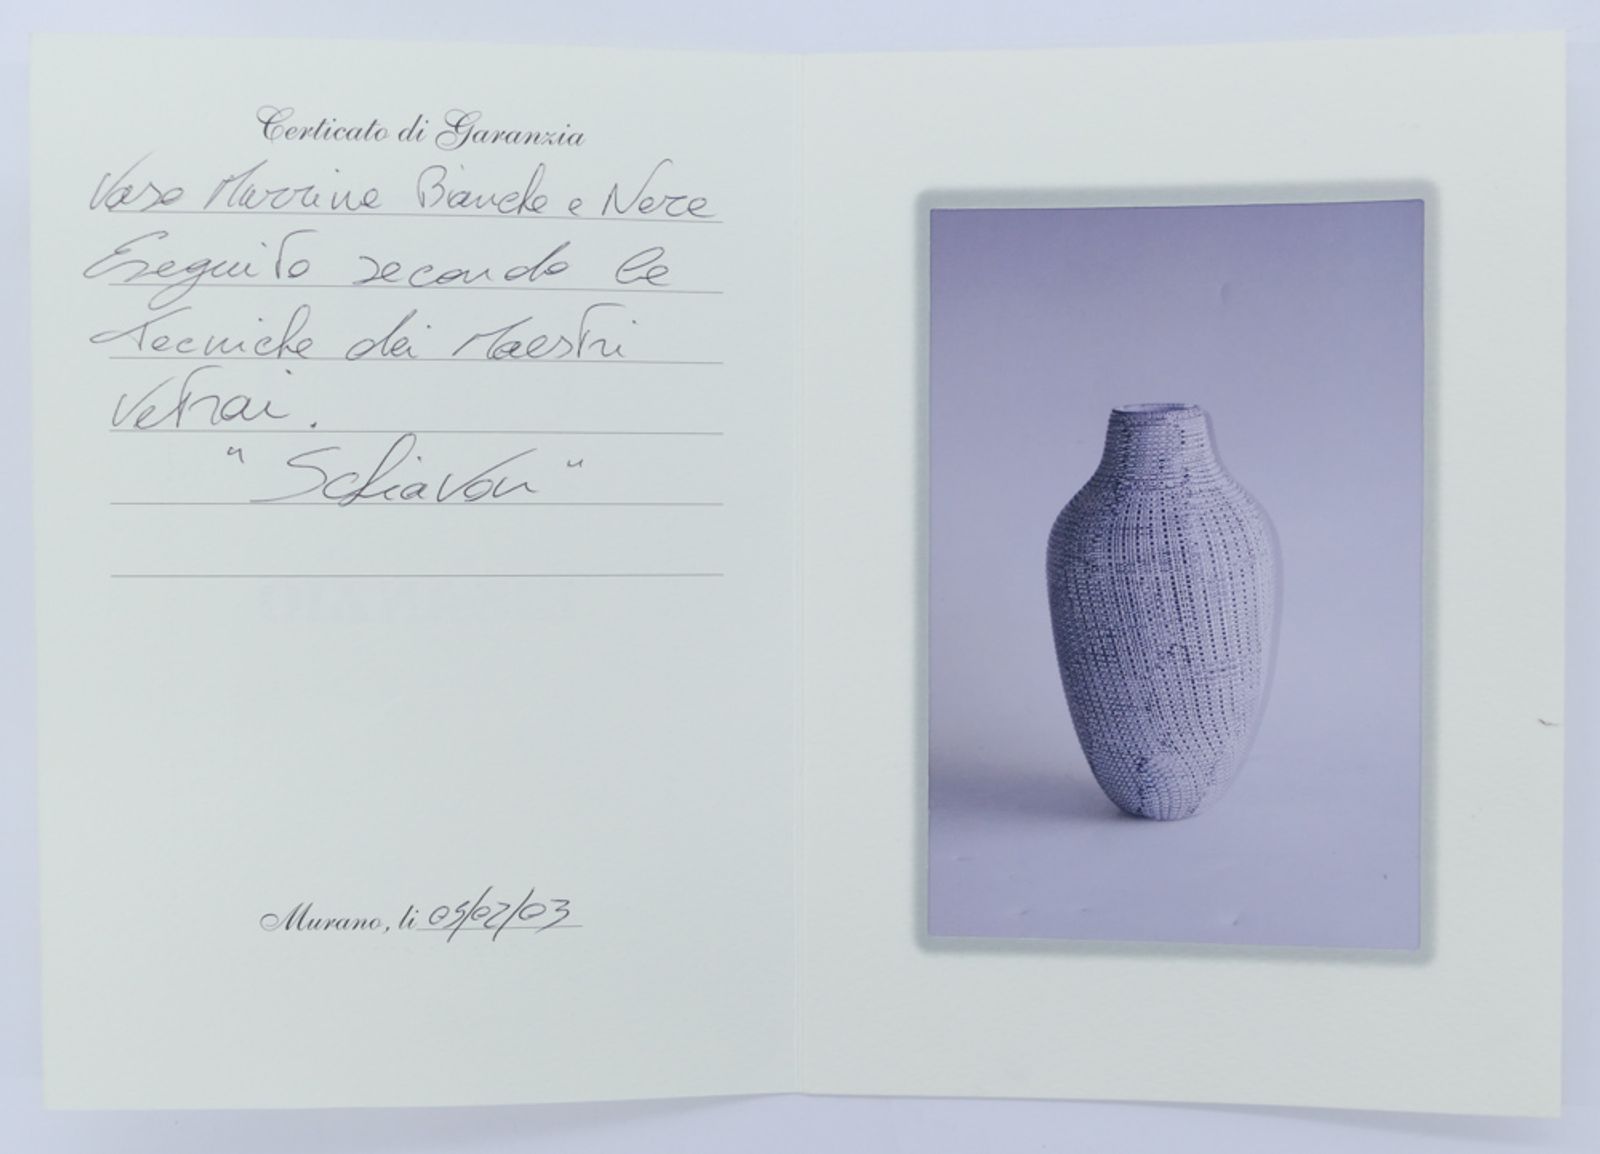 Certicato di Garanzia
Vaso Murrine Bianche e Nere
Eseguito secondo le
Tecniche dei Maestri
Vetrai.
"Schiavon"
Murano, li 05/02/03